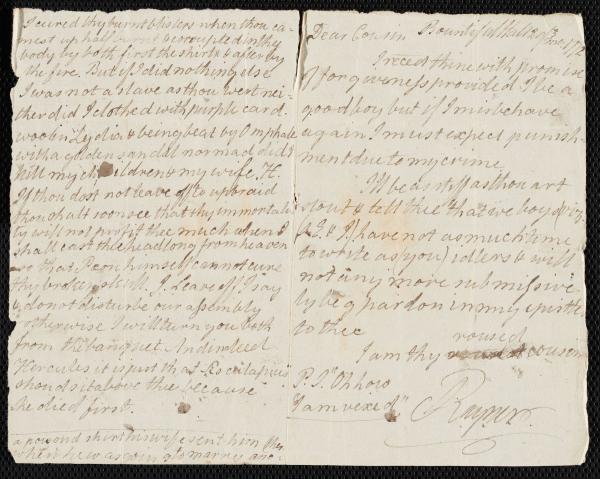 I cured thy burnt blisters when thou ca-
mest up half burnt & corrupted in thy
body by both first the shirt & after by
the fire. But if I did nothing else
I was not a slave as thou wert nei-
ther did I clothed with purple card
wool in Lydia & being beat by Omphale
with a golden sandal nor mad did I
kill my children & my wife. H.
If thou dost not leave off to upbraid
thou shalt soon see that thy immortali
ty will not profit thee much when I
shall cast thee headlong from heaven
so that Peon himself cannot cure
thy broken skull. J. Leave off I say
& do not disturb our assembly
otherwise I will turn you both
from the banquet. And indeed
Hercules it is just that Esculapius
should sit above thee because
he died first.
a poisond shirt his wife sent him
when he was going to marry ano-
Dear Cousin Bountiful Hall
I recd thine with promise
of forgiveness provided I be a
good boy but if I misbehave
again I must expect punish
ment due to my crime
I'll be as stiff as thou art
stout & tell thee that we boys (viz.
& I) have not as much time
to write as you) idlers & will
not any more submissive
ly beg pardon in my epistle
to thee
roused
I am thy cousin
P.S. "Oh how
I am vexed" Rayner.